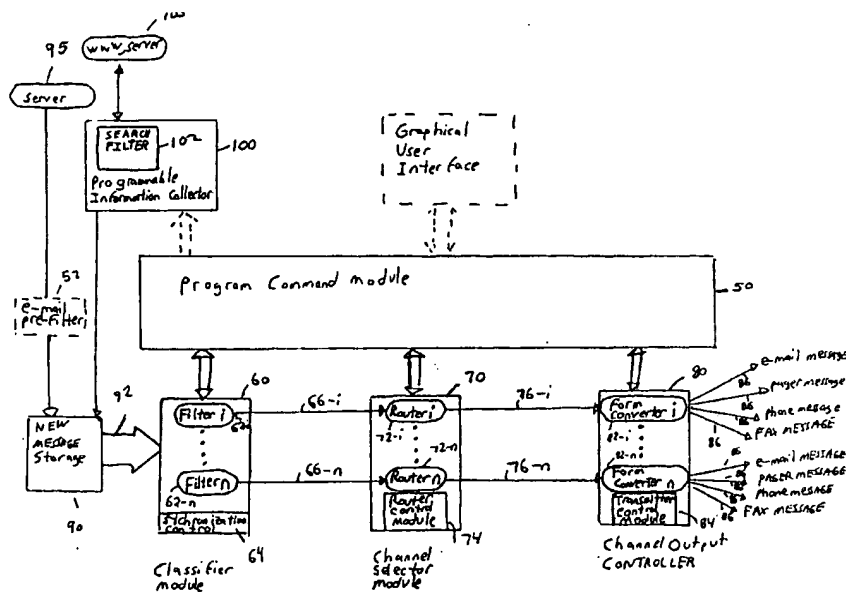 100
www server
95
Server
SEARCH
FILTER
102
100
Programmable
Information Collector
Graphical
User
Interface
Program Command module
50
52
e-mail
pre-Filter
NEW
MESSAGE
Storage
90
92
60
Filter i
62-i
66-i
Filter n
62-n
66-n
64
Classifier
module
70
Router i
72-i
76-i
72-n
Router n
76-n
Router
control
module
74
Channel
Selector
module
80
Form
Converter i
82-i
82-n
Form
Converter n
Control
Module
84
Channel Output
CONTROLLER
e-mail message
86
pager message
86
phone message
86
FAX MESSAGE
86
e-mail MESSAGE
86
PAGER MESSAGE
86
phone message
86
FAX MESSAGE
86